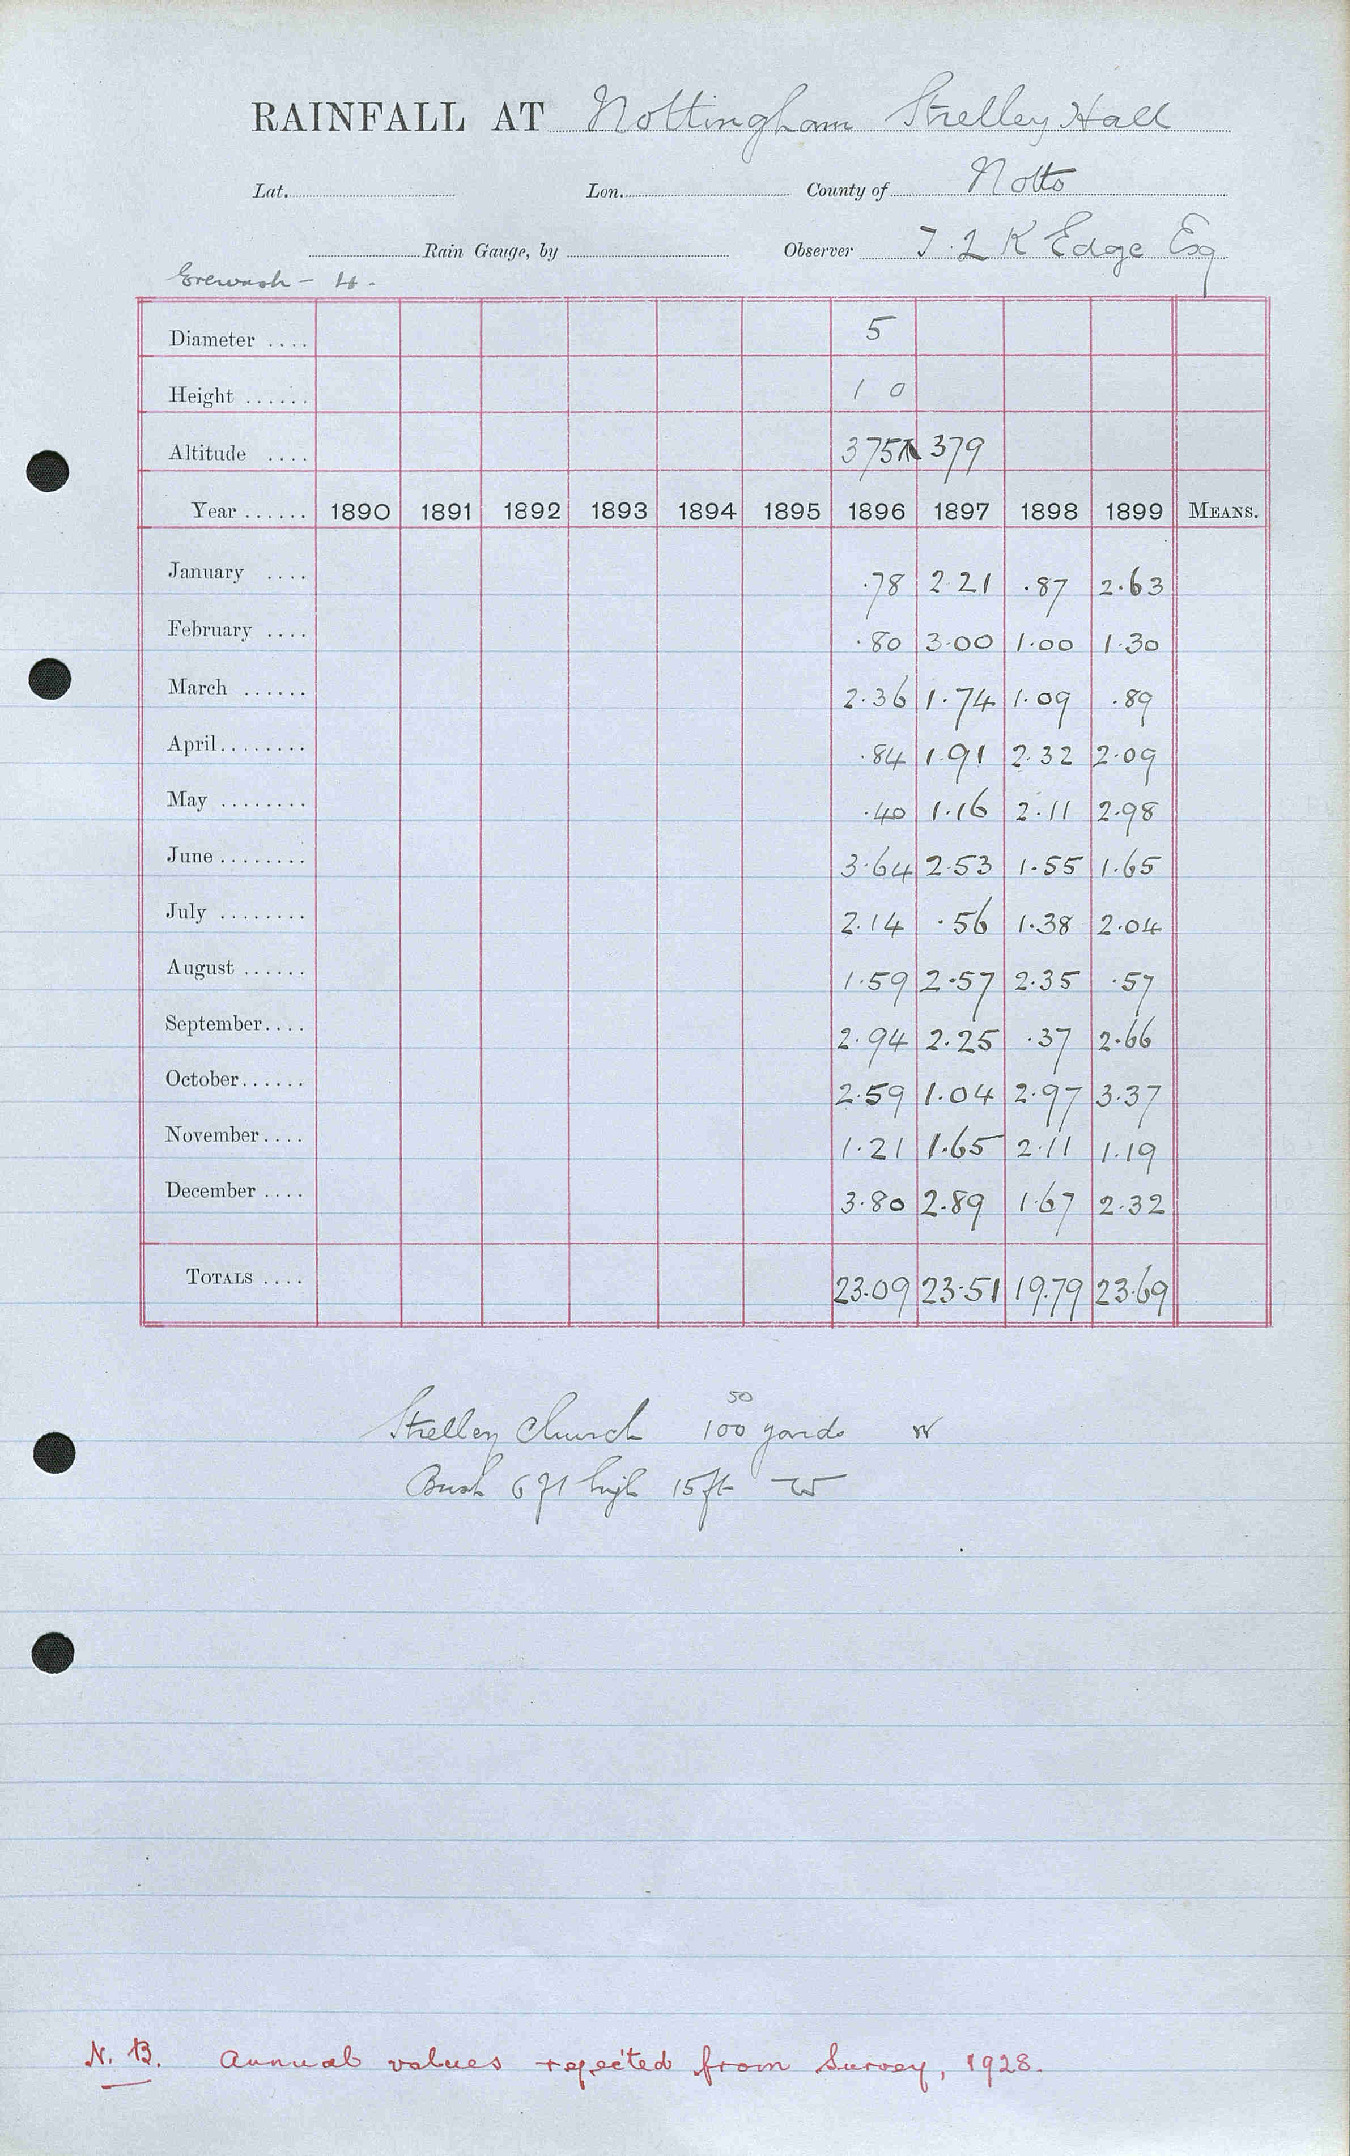 RAINFALL AT Nottingham Strelley Hall
Lat. Lon. County of Notts
Rain Gauge, by Observer T. L K Edge Esq
Erewash - 4.
Diameter .... 5
Height ...... 1 0
Altitude .... 375 379
Year ...... 1890 1891 1892 1893 1894 1895 1896 1897 1898 1899 MEANS.
January .... .78 2.21 .87 2.63
February .... .80 3.00 1.00 1.30
March ...... 2.36 1.74 1.09 .89
April........ .84 1.91 2.32 2.09
May ........ .40 1.16 2.11 2.98
June ........ 3.64 2.53 1.55 1.65
July ........ 2.14 .56 1.38 2.04
August ...... 1.59 2.57 2.35 .57
September.... 2.94 2.25 .37 2.66
October...... 2.59 1.04 2.97 3.37
November.... 1.21 1.65 2.11 1.19
December .... 3.80 2.89 1.67 2.32
TOTALS .... 23.09 23.51 19.79 23.69
50
Strelley Church 100 yards W
Bush 6 ft high 15 ft W
N.B. Annual values rejected from Survey, 1928.